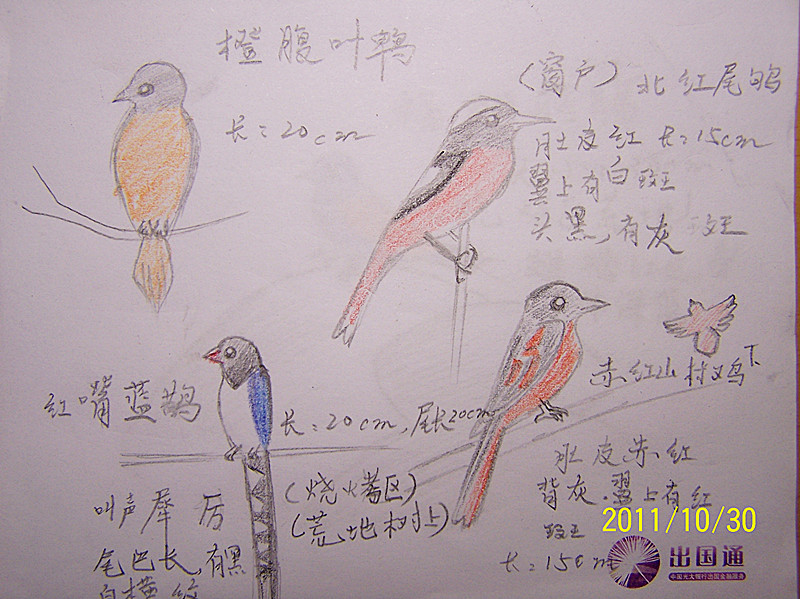 橙腹叶鹎
长：20cm
（窗户）北红尾鸲
肚皮红 长：15cm
翼上有白斑
头黑，有灰斑
红嘴蓝鹊
长：20cm，尾长20cm
（烧烤区）
（荒地树上）
叫声犀厉
尾巴长，有黑
白横纹
赤红山椒鸟下
肚皮赤红
背灰．翼上有红
斑
长：15cm
2011/10/30
出国通
中国光大银行出国金融服务